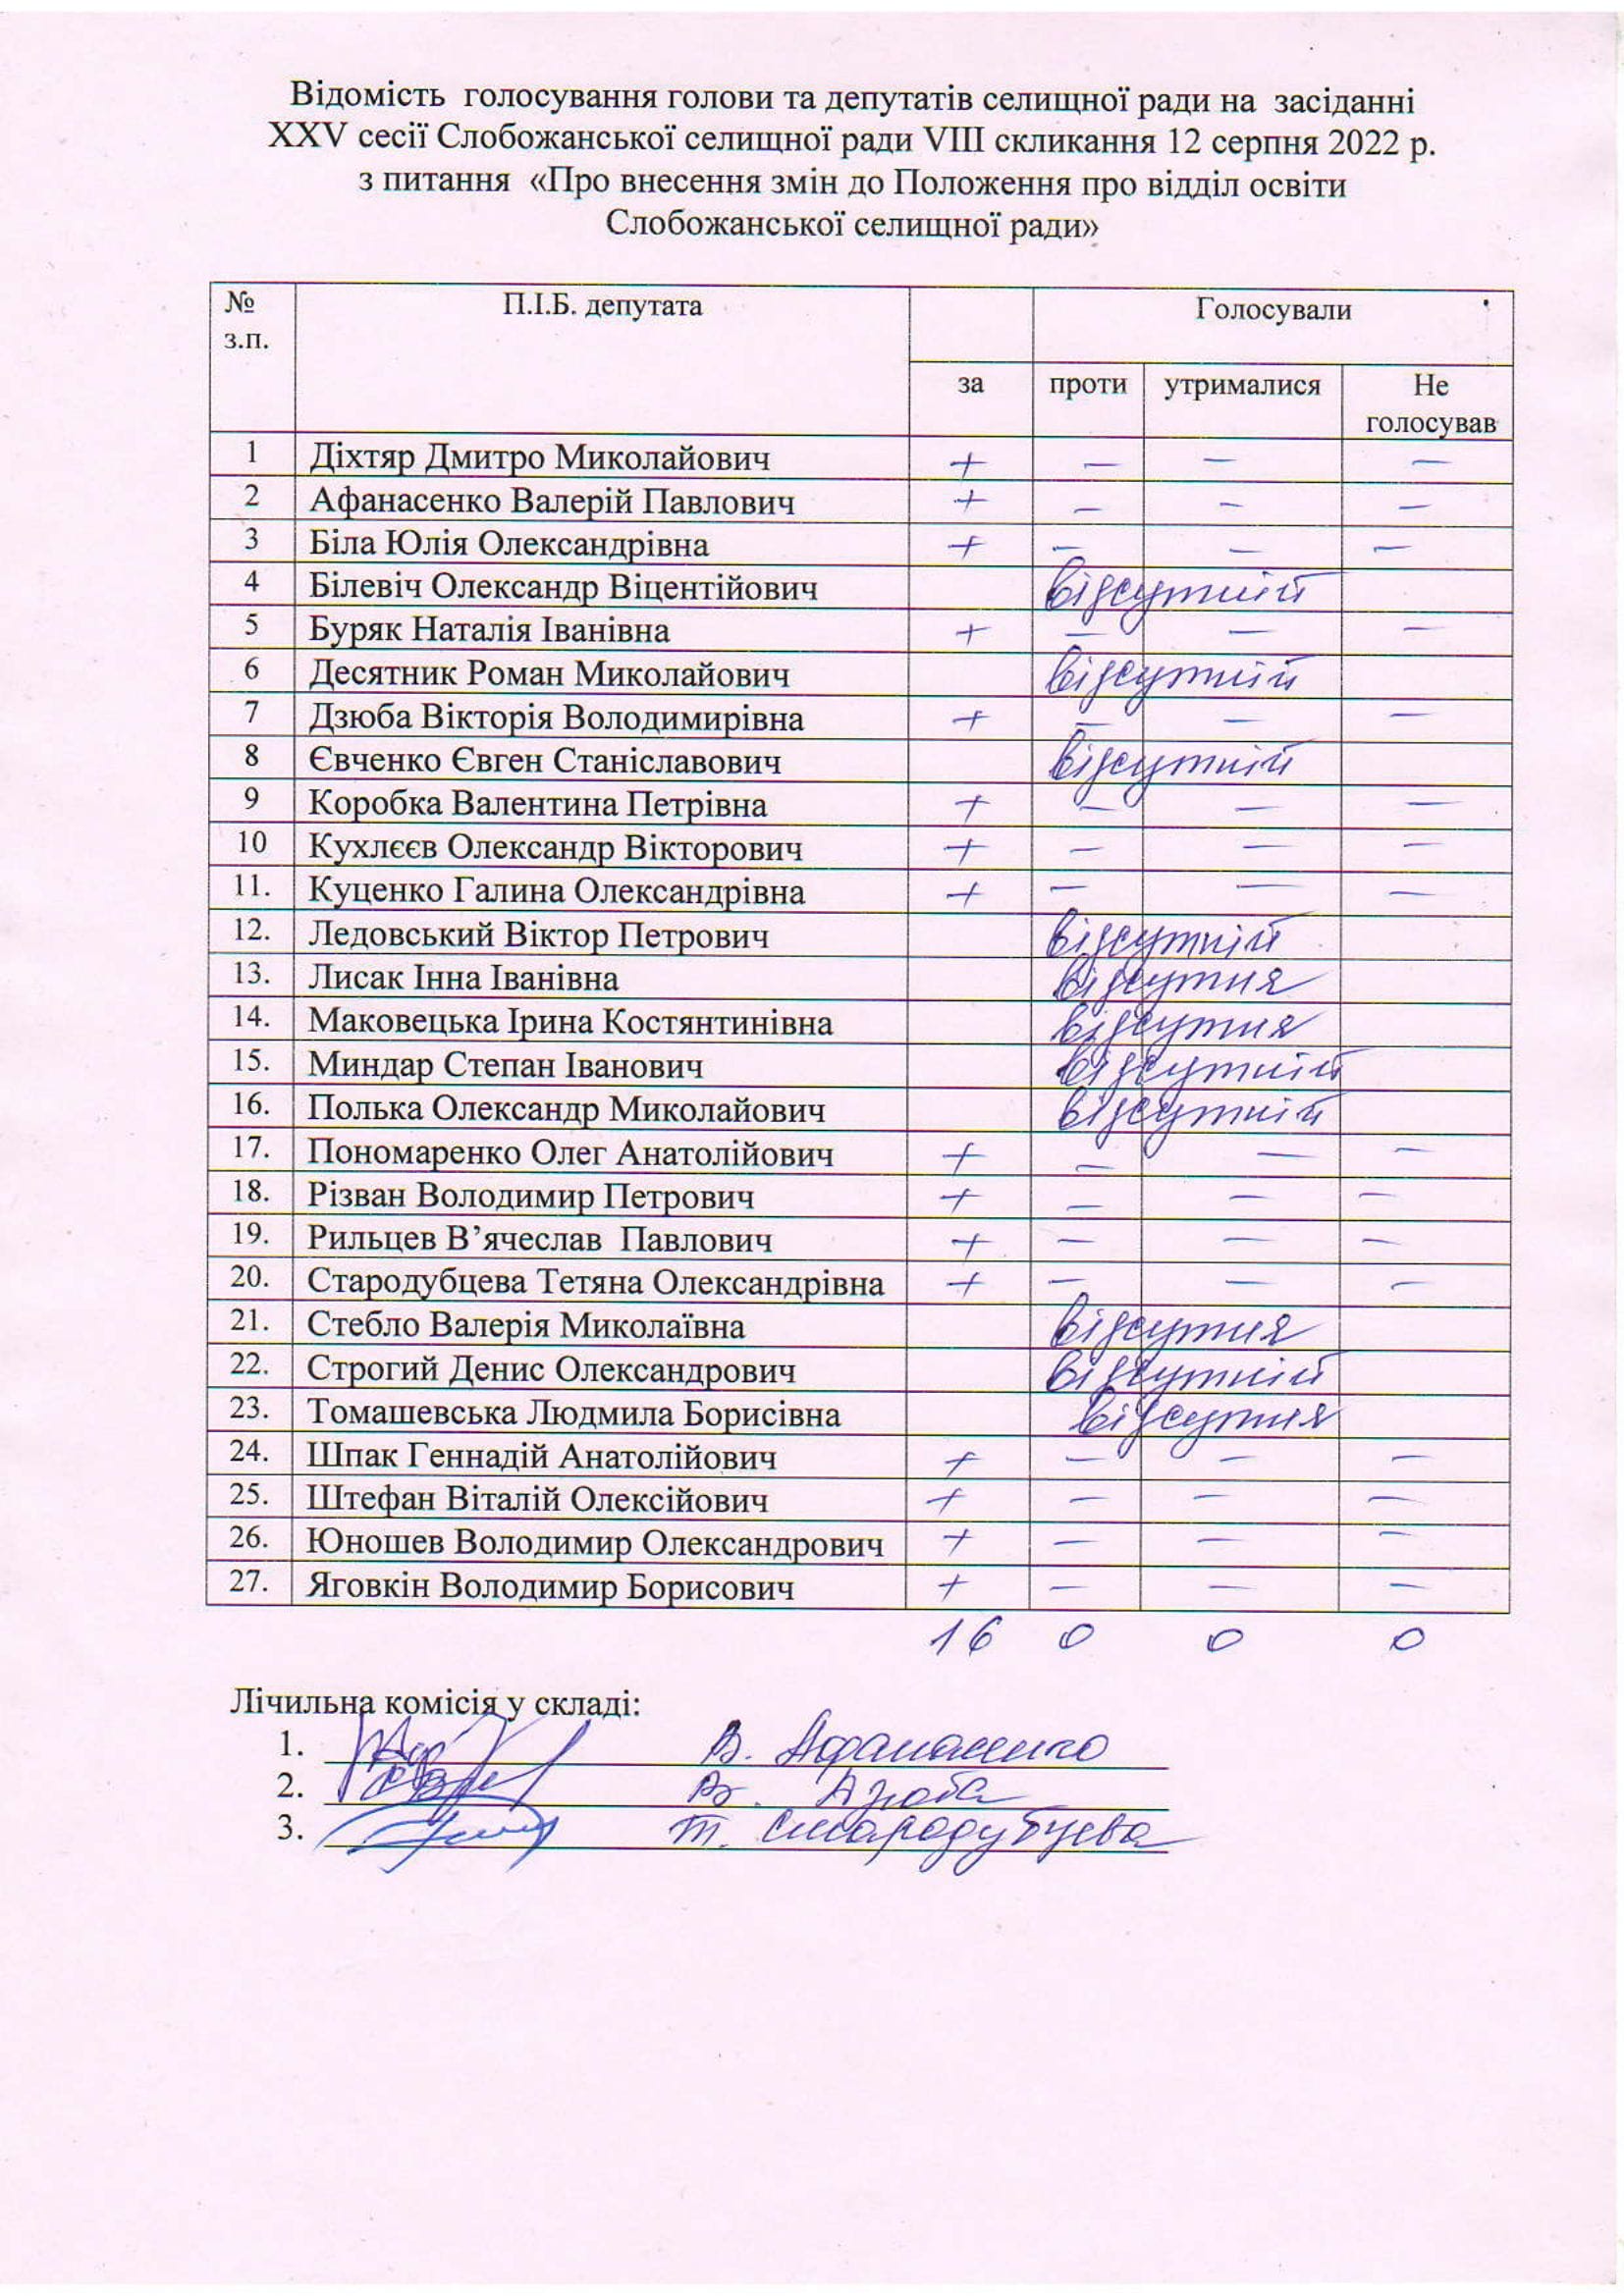 Відомість голосування голови та депутатів селищної ради на засіданні
XXV сесії Слобожанської селищної ради VIII скликання 12 серпня 2022 р.
з питання «Про внесення змін до Положення про відділ освіти
Слобожанської селищної ради»
№ з.п. П.І.Б. депутата Голосували
за проти утрималися Не голосував
1 Діхтяр Дмитро Миколайович + — — —
2 Афанасенко Валерій Павлович + — — —
3 Біла Юлія Олександрівна + — — —
4 Білевіч Олександр Віцентійович відсутній
5 Буряк Наталія Іванівна + — — —
6 Десятник Роман Миколайович відсутній
7 Дзюба Вікторія Володимирівна + — — —
8 Євченко Євген Станіславович відсутній
9 Коробка Валентина Петрівна + — — —
10 Кухлєєв Олександр Вікторович + — — —
11. Куценко Галина Олександрівна + — — —
12. Ледовський Віктор Петрович відсутній
13. Лисак Інна Іванівна відсутня
14. Маковецька Ірина Костянтинівна відсутня
15. Миндар Степан Іванович відсутній
16. Полька Олександр Миколайович відсутній
17. Пономаренко Олег Анатолійович + — — —
18. Різван Володимир Петрович + — — —
19. Рильцев В’ячеслав Павлович + — — —
20. Стародубцева Тетяна Олександрівна + — — —
21. Стебло Валерія Миколаївна відсутня
22. Строгий Денис Олександрович відсутній
23. Томашевська Людмила Борисівна відсутня
24. Шпак Геннадій Анатолійович + — — —
25. Штефан Віталій Олексійович + — — —
26. Юношев Володимир Олександрович + — — —
27. Яговкін Володимир Борисович + — — —
16 0 0 0
Лічильна комісія у складі:
1. В. Афанасенко
2. В. Дзюба
3. Т. Стародубцева